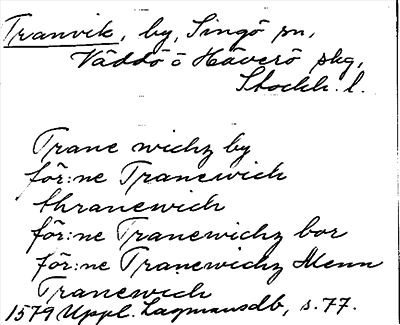 Tranvik, by, Singö sn,
Väddö o Häverö skg,
Stockh. l.
Trane wichz by
för:ne Tranewich
thranewich
för:ne Tranewichz bor
för:ne Tranewichz Menn
Tranewich
1579 Uppl. Lagmansdb, s. 77.